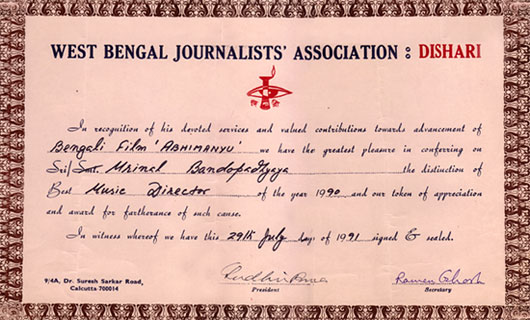 WEST BENGAL JOURNALISTS' ASSOCIATION : DISHARI
In recognition of his devoted services and valued contributions towards advancement of
Bengali Film 'ABHIMANYU' we have the greatest pleasure in conferring on
Sri/Smt. Mrinal Bandopadhyaya the distinction of
Best Music Director of the year 1990 and our token of appreciation
and award for fartherance of such cause.
In witness whereof we have this 29th July day of 1991 signed & sealed.
9/4A, Dr. Suresh Sarkar Road,
Calcutta 700014
President
Ramen Ghosh
Secretary